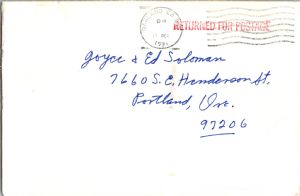 RETURNED FOR POSTAGE
Joyce & Ed Soloman
7660 S.E. Henderson St.
Portland, Ore.
97206